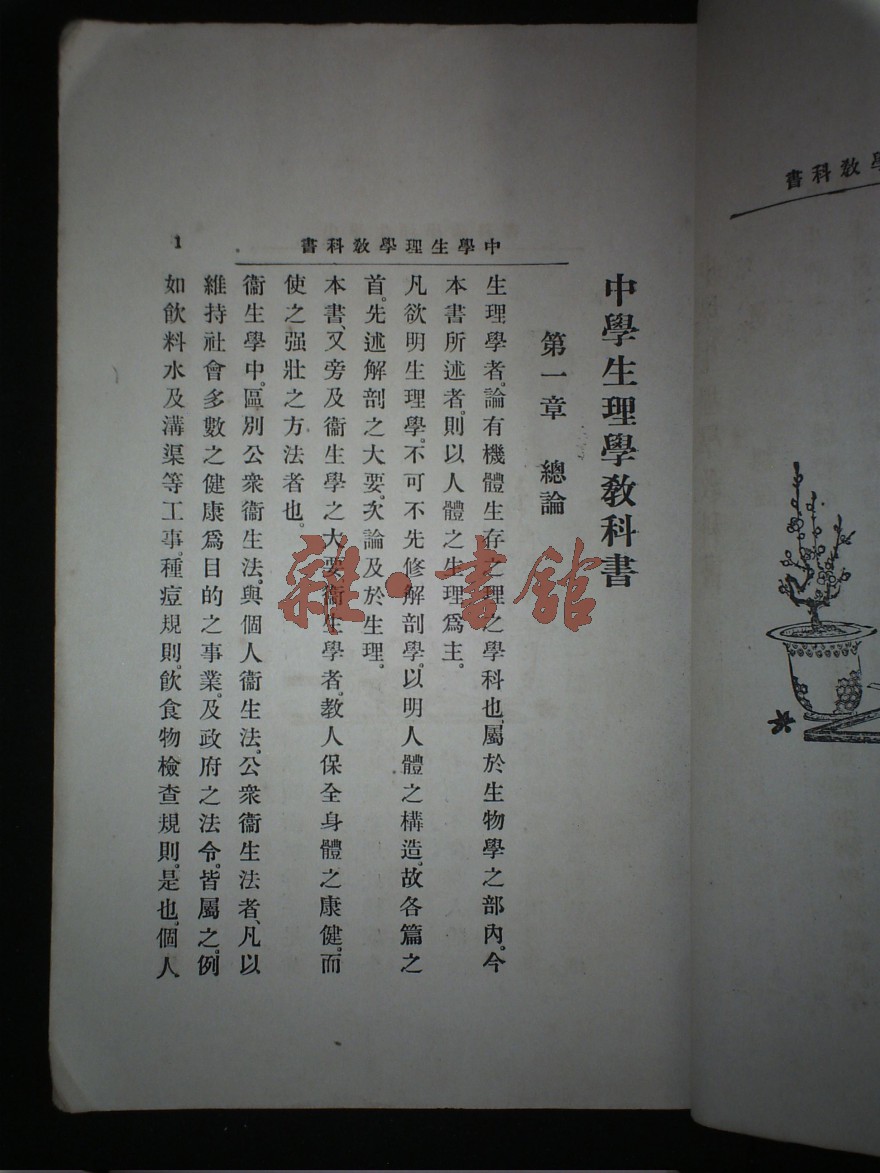 書科教學
中學生理學教科書
1
中學生理學教科書
第一章　總論
生理學者。論有機體生存之理之學科也、屬於生物學之部內。今
本書所述者。則以人體之生理爲主。
凡欲明生理學。不可不先修解剖學。以明人體之構造。故各篇之
首。先述解剖之大要。次論及於生理。
本書、又旁及衞生學之大要、衞生學者。教人保全身體之康健。而
使之强壯之方法者也。
衞生學中。區別公衆衞生法。與個人衞生法。公衆衞生法者、凡以
維持社會多數之健康爲目的之事業。及政府之法令。皆屬之。例
如飲料水及溝渠等工事。種痘規則。飲食物檢查規則。是也。個人
雜·書館